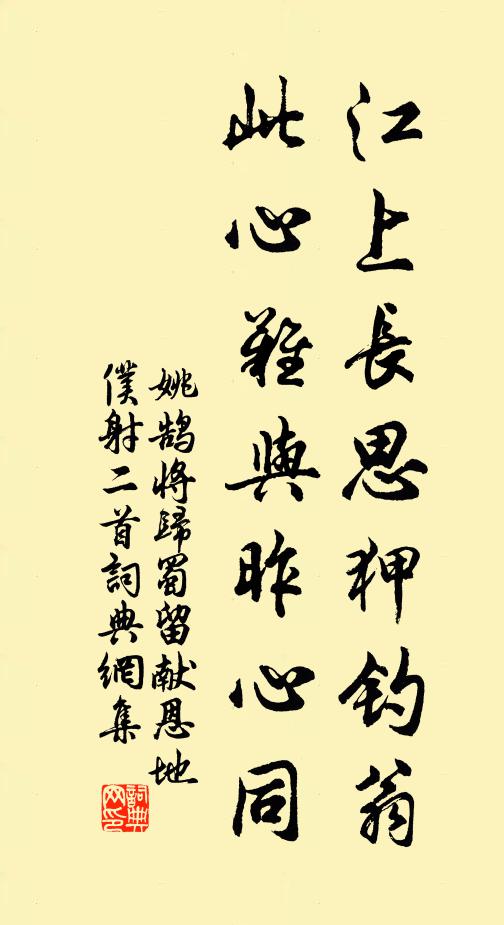 江上長思狎釣翁
此心難與昨心同
姚鵠將歸蜀留献恩地
僕射二首詞典網集
詞典
网印